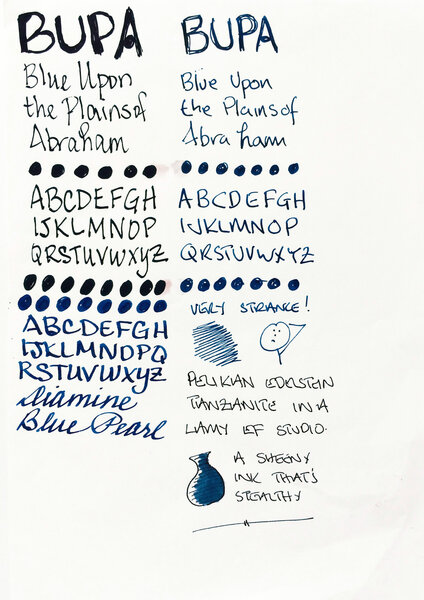 BUPA
Blue Upon
the Plains of
Abraham
ABCDEFGH
IJKLMNOP
QRSTUVWXYZ
ABCDEFGH
IJKLMNOPQ
RSTUVWXYZ
Diamine
Blue Pearl
BUPA
Blue Upon
the Plains of
Abraham
ABCDEFGH
IJKLMNOP
QRSTUVWXYZ
VERY STRANGE!
PELIKIAN EDELSTEIN
TANZANITE IN A
LAMY EF STUDIO.
A SHEENY
INK THAT'S
STEALTHY